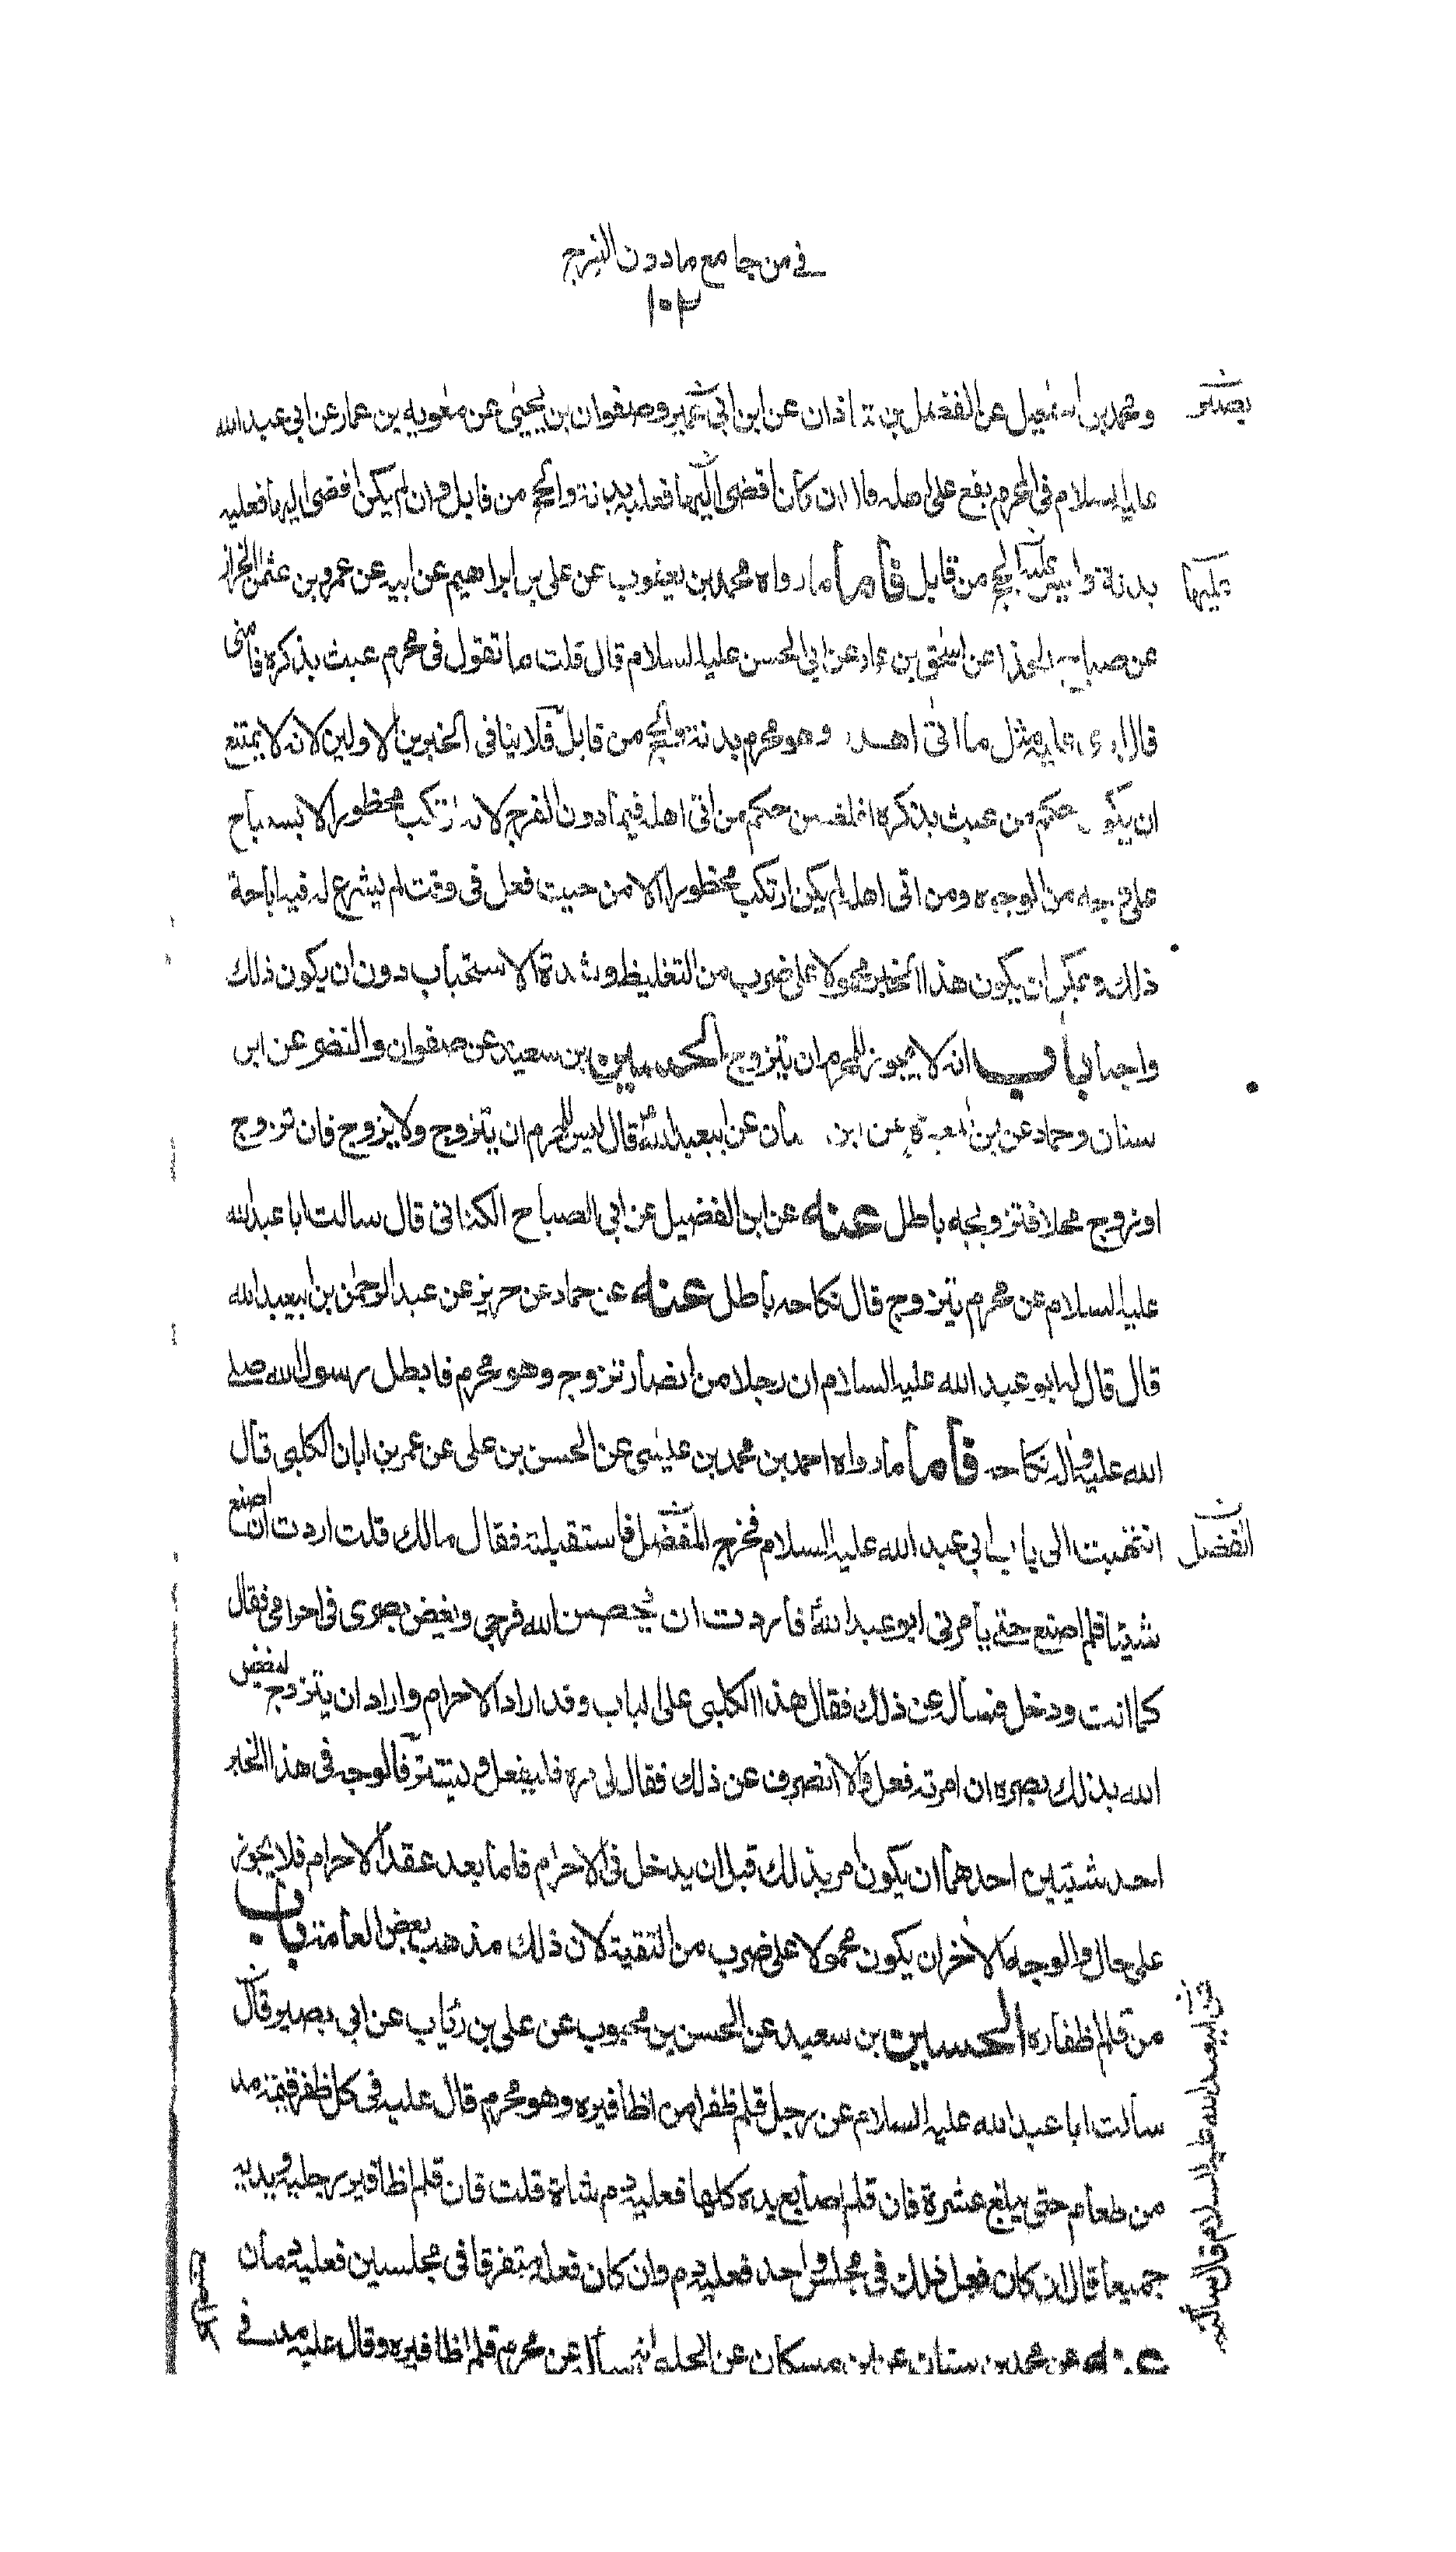 في من جامع مادون الفرج
١٠٢
ومحمد بن اسمعيل عن الفضل بن شاذان عن ابن ابي عمير وصفوان بن يحيى عن معويه بن عمار عن ابي عبد الله
عليه السلام في المحرم يقع على اهله قال ان كان افضى اليها فعليه بدنة والحج من قابل وان لم يكن افضى اليها فعليه
بدنة وليس عليه الحج من قابل فأما ما رواه محمد بن يعقوب عن علي بن ابراهيم عن ابيه عن عمرو بن عثمن الخزاز
عن صباح الحذا عن اسحق بن عمار عن ابي الحسن عليه السلام قال قلت ما تقول في محرم عبث بذكره فامنى
قال ارى عليه مثل ما اتى اهله وهو محرم بدنة والحج من قابل فلا ينافي الخبرين الاولين لانه لا يمتنع
ان يكون حكم من عبث بذكره اغلظ من حكم من اتى اهله فيما دون الفرج لانه ارتكب محظورا لا يستباح
على وجه من الوجوه ومن اتى اهله لم يكن ارتكب محظورا الا من حيث فعل في وقت لم يشرع له فيه اباحة
ذلك ويمكن ان يكون هذا الخبر محمولا على ضرب من التغليظ وشدة الاستحباب دون ان يكون ذلك
واجبا باب انه لا يجوز للمحرم ان يتزوج الحسين بن سعيد عن صفوان والنضر عن ابن
سنان وحماد عن ابن المغيرة عن ابن سنان عن ابيعبد الله ع قال ليس للمحرم ان يتزوج ولا يزوج فان تزوج
او زوج محلا فتزويجه باطل عنه عن ابن الفضيل عن ابي الصباح الكناني قال سالت ابا عبد الله
عليه السلام عن محرم يتزوج قال نكاحه باطل عنه عن حماد عن حريز عن عبد الرحمن بن ابيعبد الله
قال قال له ابو عبد الله عليه السلام ان رجلا من انصار تزوج وهو محرم فابطل رسول الله صلى
الله عليه واله نكاحه فأما ما رواه احمد بن محمد بن عيسى عن الحسن بن علي عن عمر بن ابان الكلبي قال
انتهيت الى باب ابي عبد الله عليه السلام فخرج المفضل فاستقبلته فقال مالك قلت اردت ان اصنع
شيئا فلم اصنع حتى يأمرني ابو عبد الله ع فاردت ان يحصن الله فرجي ويغض بصرى في احرامي فقال
كما انت ودخل فسأله عن ذلك فقال هذا الكلبى على الباب وقد اراد الاحرام واراد ان يتزوج ليغض
الله بذلك بصره ان امرته فعل والا انصرف عن ذلك فقال لي مره فليفعل وليستتر فالوجه في هذا الخبر
احد شيئين احدهما ان يكون امر بذلك قبل ان يدخل في الاحرام فاما بعد عقد الاحرام فلا يجوز
على حال والوجه الاخر ان يكون محمولا على ضرب من التقية لان ذلك مذهب بعض العامة باب
من قلم اظفاره الحسين بن سعيد عن الحسن بن محبوب عن علي بن رئاب عن ابي بصير قال
سألت ابا عبد الله عليه السلام عن رجل قلم ظفرا من اظافيره وهو محرم قال عليه في كل ظفر قيمة مد
من طعام حتى يبلغ عشرة فان قلم اصابع يديه كلها فعليه دم شاة قلت فان قلم اظافير رجليه ويديه
جميعا قال ان كان فعل ذلك في مجلس واحد فعليه دم وان كان فعله متفرقا في مجلسين فعليه دمان
عنه عن محمد بن سنان عن ابن مسكان عن الحلبي انه سأله عن محرم قلم اظافيره وقال عليه مد في
عليها
المفضل